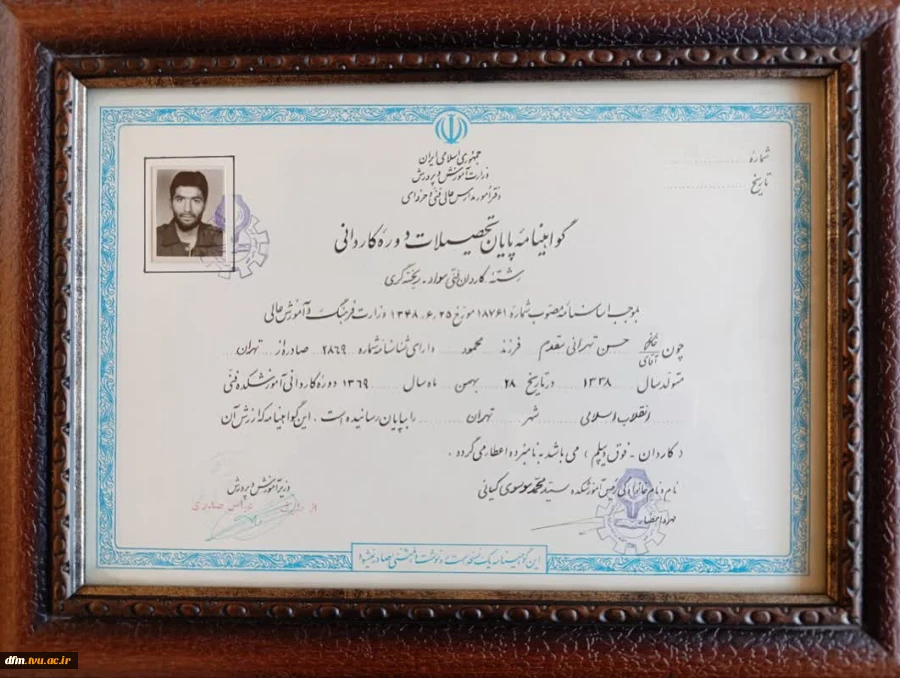 جمهوری اسلامی ایران
وزارت آموزش و پرورش
دفتر امور مدارس عالی فنی و حرفه‌ای
شماره
تاریخ
گواهینامه پایان تحصیلات دوره کاردانی
رشته: کاردان فنی مواد - ریخته‌گری
بموجب اساسنامه مصوب شماره ۱۸۷۶۱ مورخ ۱۳۴۸.۶.۲۵ وزارت فرهنگ و آموزش عالی
چون خانم آقای حسن تهرانی مقدم فرزند محمود دارای شناسنامه شماره ۲۸۶۹ صادره از تهران
متولد سال ۱۳۳۸ در تاریخ ۲۸ بهمن ماه سال ۱۳۶۹ دوره کاردانی آموزشکده فنی
انقلاب اسلامی شهر تهران را بپایان رسانیده است . این گواهینامه که ارزش آن
( کاردان - فوق دیپلم ) می باشد به نامبرده اعطا می گردد .
نام و نام خانوادگی رئیس آموزشکده سید محمد موسوی کیانی
مهر و امضاء
وزیر آموزش و پرورش
از طرف عباس صدری
این گواهینامه یک نسخه است و نوشت المثنی صادر نمیشود
dfm.tvu.ac.ir